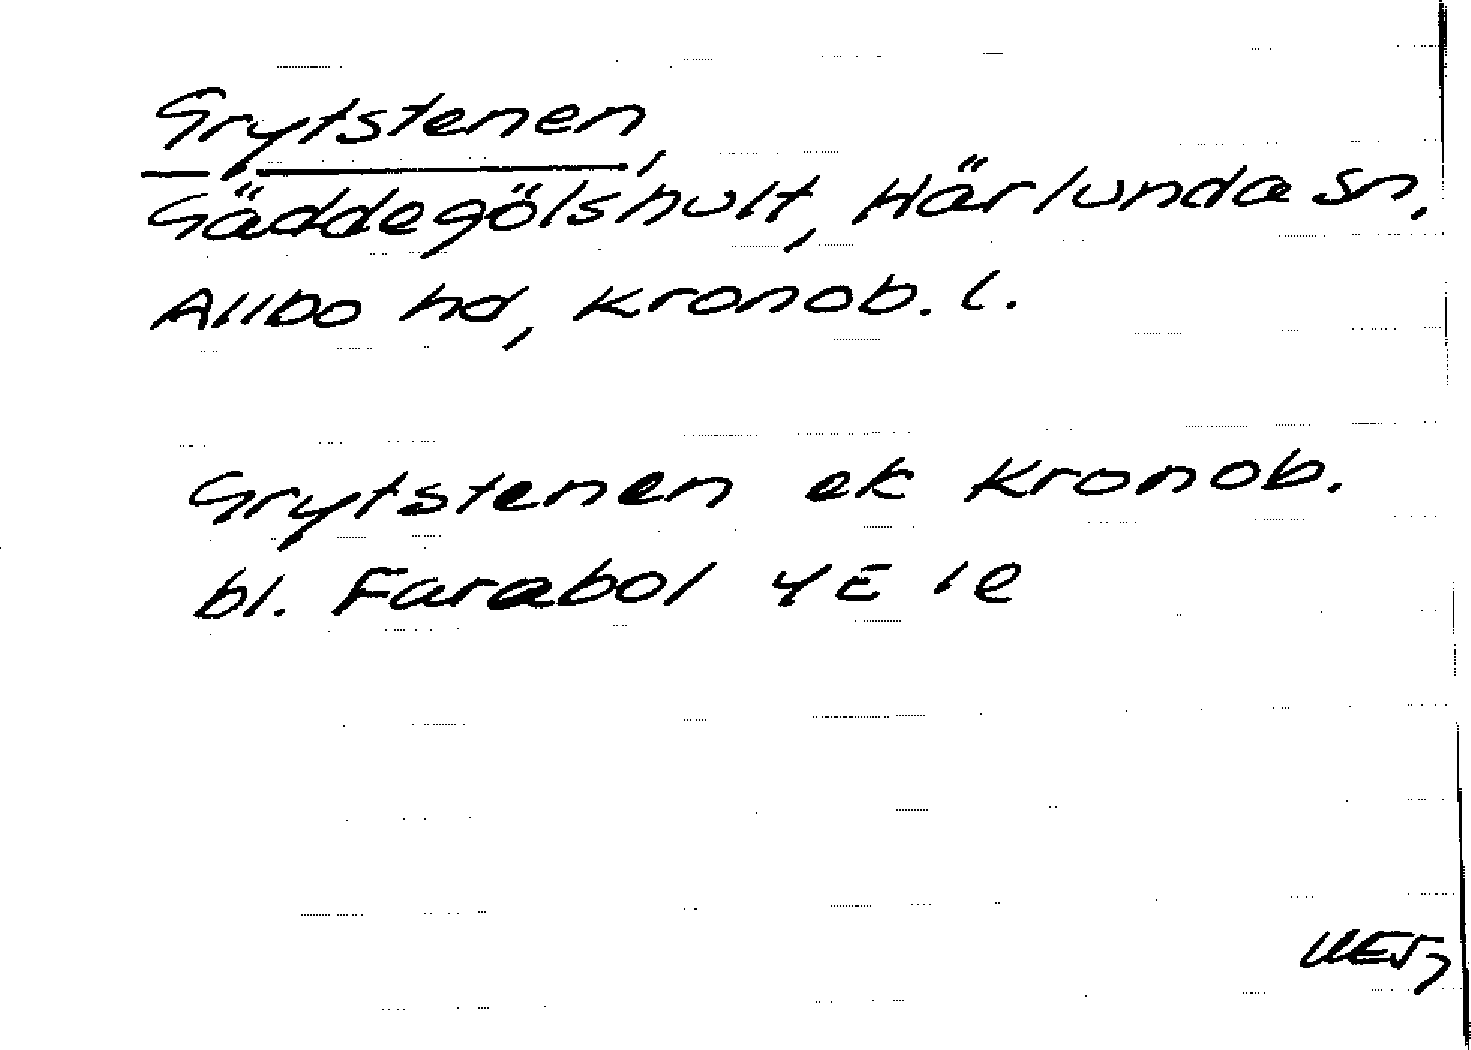 Grytstenen,
Gäddegölshult, Härlunda sn,
Allbo hd, Kronob. l.
Grytstenen ek Kronob.
bl. Farabol 4E 1e